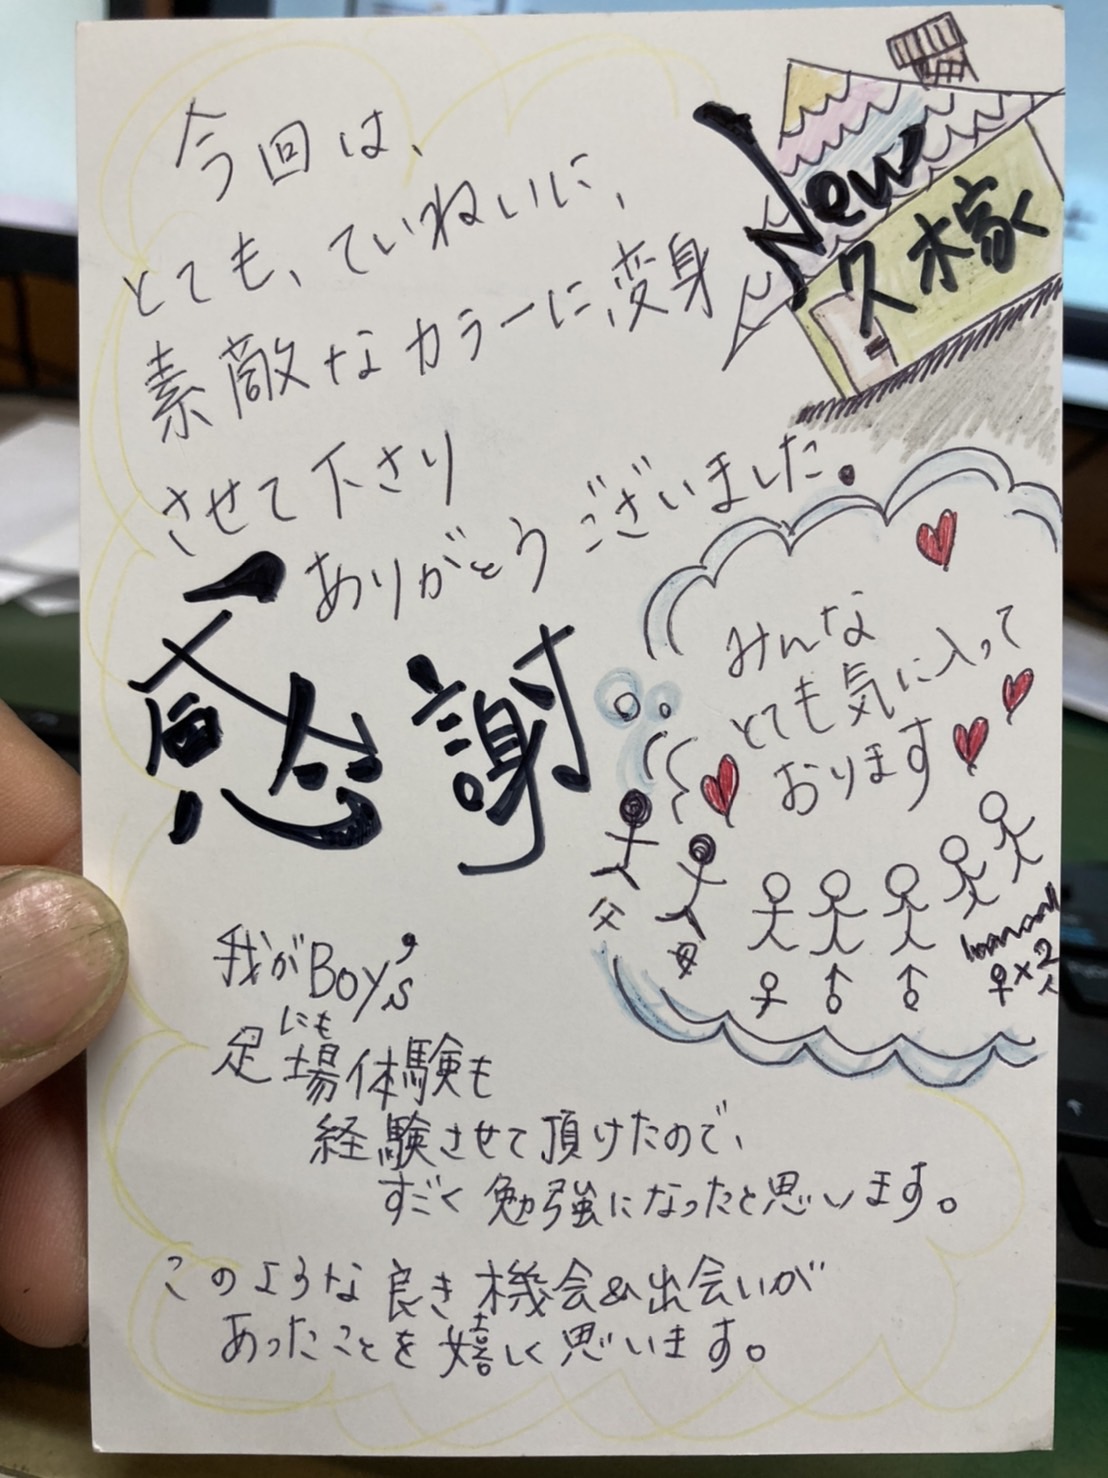 今回は、
とても、ていねいに、
素敵なカラーに変身
させて下さり
ありがとうございました.
New
久木家
感謝
みんな
とても気に入って
おります
父
母
♀
♂
♂
♀×2
我がBoy's
にも
足場体験も
経験させて頂けたので、
すごく勉強になったと思います。
このような良き機会&出会いが
あったことを嬉しく思います。